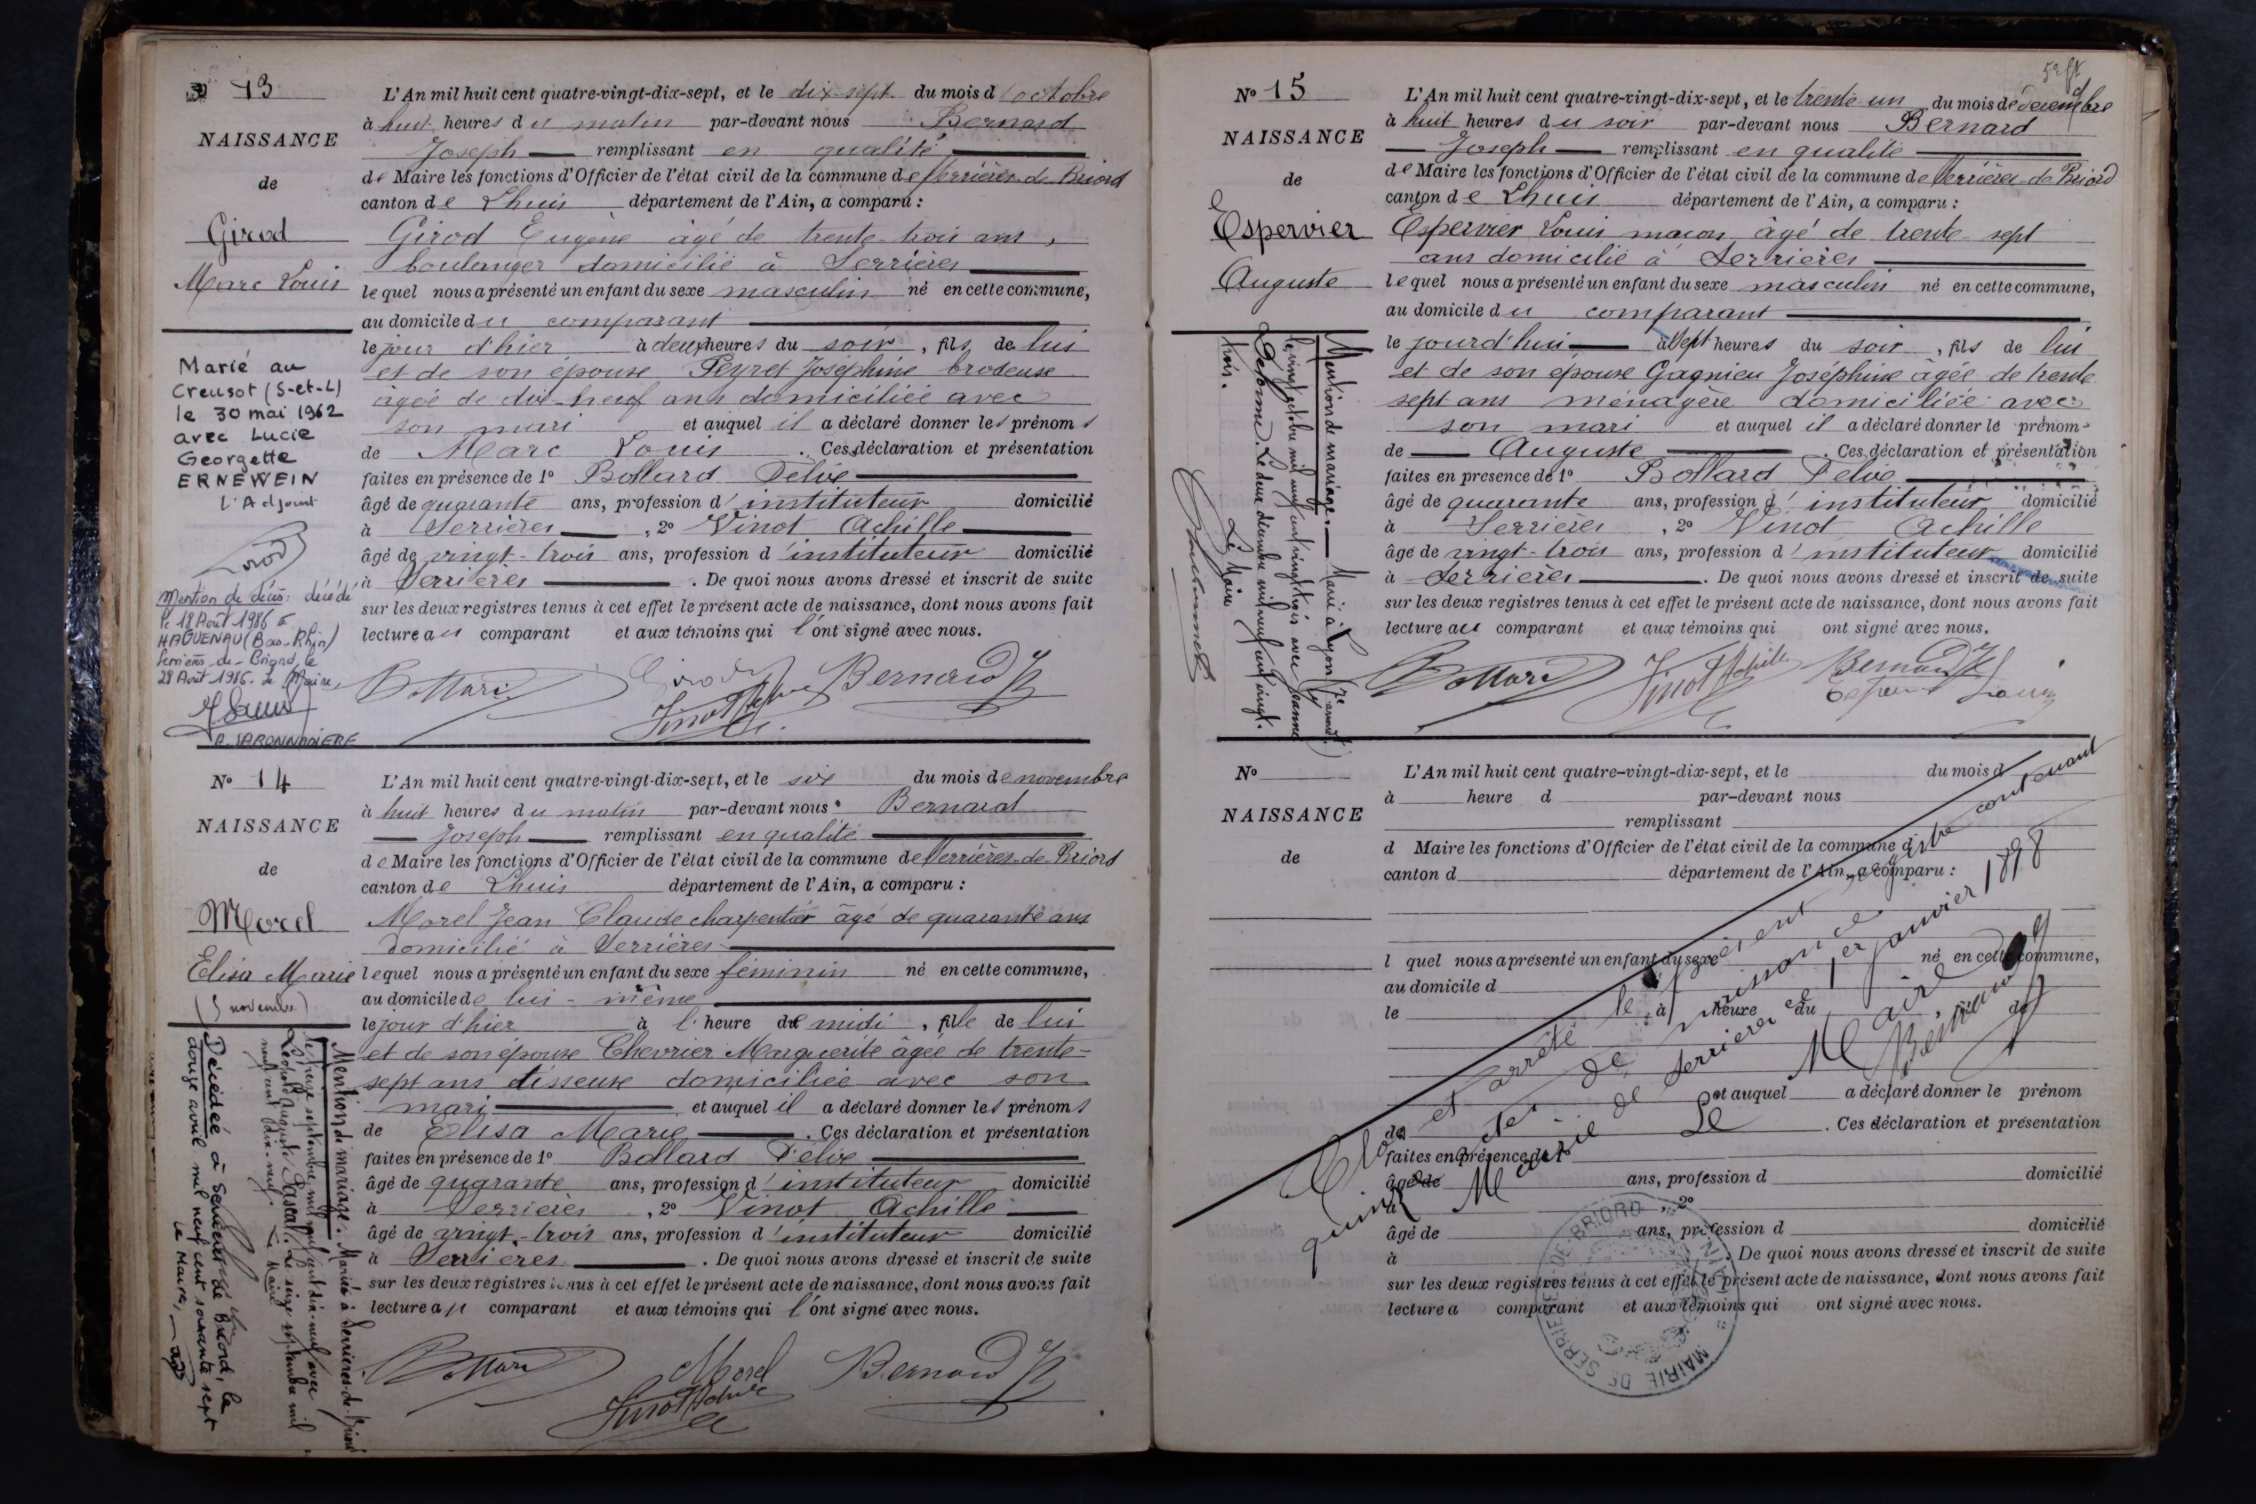 13
NAISSANCE
de
Girod
Marc Louis
L'An mil huit cent quatre-vingt-dix-sept, et le dix sept du mois d'octobre
à huit heures du matin par-devant nous Bernard
Joseph remplissant en qualité
de Maire les fonctions d'Officier de l'état civil de la commune de Serrières-de-Briord
canton de Lhuis département de l'Ain, a comparu :
Girod Eugène âgé de trente-trois ans,
boulanger domicilié à Serrières
lequel nous a présenté un enfant du sexe masculin né en cette commune,
au domicile du comparant
le jour d'hier à deux heures du soir, fils de lui
et de son épouse Peyret Joséphine brodeuse
âgée de dix-neuf ans domiciliée avec
son mari et auquel il a déclaré donner les prénoms
de Marc Louis. Ces déclaration et présentation
faites en présence de 1º Bollard Félix
âgé de quarante ans, profession d'instituteur domicilié
à Serrières, 2º Vinot Achille
âgé de vingt-trois ans, profession d'instituteur domicilié
à Serrières. De quoi nous avons dressé et inscrit de suite
sur les deux registres tenus à cet effet le présent acte de naissance, dont nous avons fait
lecture au comparant et aux témoins qui l'ont signé avec nous.
Bollard Girod Vinot Achille Bernard
Marié au
Creusot (S-et-L)
le 30 mai 1962
avec Lucie
Georgette
ERNEWEIN
L'Adjoint
Mention de décès: décédé
le 18 Août 1986 à
HAGUENAU (Bas-Rhin)
Serrières-de-Briord, le
28 Août 1986. Le Maire,
Nº 14
NAISSANCE
de
Morel
Elisa Marie
(5 novembre)
L'An mil huit cent quatre-vingt-dix-sept, et le six du mois de novembre
à huit heures du matin par-devant nous Bernard
Joseph remplissant en qualité
de Maire les fonctions d'Officier de l'état civil de la commune de Serrières-de-Briord
canton de Lhuis département de l'Ain, a comparu :
Morel Jean Claude charpentier âgé de quarante ans
domicilié à Serrières
lequel nous a présenté un enfant du sexe féminin né en cette commune,
au domicile de lui-même
le jour d'hier à l'heure de midi, fille de lui
et de son épouse Chevrier Marguerite âgée de trente-
sept ans tisseuse domiciliée avec son
mari et auquel il a déclaré donner les prénoms
de Elisa Marie. Ces déclaration et présentation
faites en présence de 1º Bollard Félix
âgé de quarante ans, profession d'instituteur domicilié
à Serrières, 2º Vinot Achille
âgé de vingt-trois ans, profession d'instituteur domicilié
à Serrières. De quoi nous avons dressé et inscrit de suite
sur les deux registres tenus à cet effet le présent acte de naissance, dont nous avons fait
lecture au comparant et aux témoins qui l'ont signé avec nous.
Bollard Morel Vinot Achille Bernard
Mention de mariage. Mariée à Serrières-de-Briord
le treize septembre mil neuf cent dix-neuf avec
Léopold Auguste Pascal. Le seize septembre mil
neuf cent dix-neuf. Le Maire
Décédée à Serrières de Briord, le
douze avril mil neuf cent soixante sept
Le Maire,
Nº 15
NAISSANCE
de
Espervier
Auguste
L'An mil huit cent quatre-vingt-dix-sept, et le trente un du mois de décembre
à huit heures du soir par-devant nous Bernard
Joseph remplissant en qualité
de Maire les fonctions d'Officier de l'état civil de la commune de Serrières-de-Briord
canton de Lhuis département de l'Ain, a comparu :
Espervier Louis maçon âgé de trente-sept
ans domicilié à Serrières
lequel nous a présenté un enfant du sexe masculin né en cette commune,
au domicile du comparant
le jourd'hui à sept heures du soir, fils de lui
et de son épouse Gagnieu Joséphine âgée de trente
sept ans ménagère domiciliée avec
son mari et auquel il a déclaré donner le prénom
de Auguste. Ces déclaration et présentation
faites en présence de 1º Bollard Félix
âgé de quarante ans, profession d'instituteur domicilié
à Serrières, 2º Vinot Achille
âgé de vingt-trois ans, profession d'instituteur domicilié
à Serrières. De quoi nous avons dressé et inscrit de suite
sur les deux registres tenus à cet effet le présent acte de naissance, dont nous avons fait
lecture au comparant et aux témoins qui ont signé avec nous.
Bollard Vinot Achille Bernard
Louis
Mention de mariage. Marié à Lyon
le vingt octobre mil neuf cent vingt trois avec Jeanne
Delorme. Le deux décembre mil neuf cent vingt-
trois. Le Maire
Nº
NAISSANCE
de
L'An mil huit cent quatre-vingt-dix-sept, et le du mois d
à heure d par-devant nous
remplissant
d Maire les fonctions d'Officier de l'état civil de la commune d
canton d département de l'Ain, a comparu :
l quel nous a présenté un enfant du sexe né en cette commune,
au domicile d
le à heure du , fi de
et auquel a déclaré donner le prénom
de . Ces déclaration et présentation
faites en présence de 1º
âgé de ans, profession d domicilié
à , 2º
âgé de ans, profession d domicilié
à . De quoi nous avons dressé et inscrit de suite
sur les deux registres tenus à cet effet le présent acte de naissance, dont nous avons fait
lecture a comparant et aux témoins qui ont signé avec nous.
Clos et arrêté le présent registre contenant
quinze actes de naissance
Mairie de Serrières ce 1er janvier 1898
Le Maire
Bernard
MAIRIE DE SERRIERES DE BRIORD